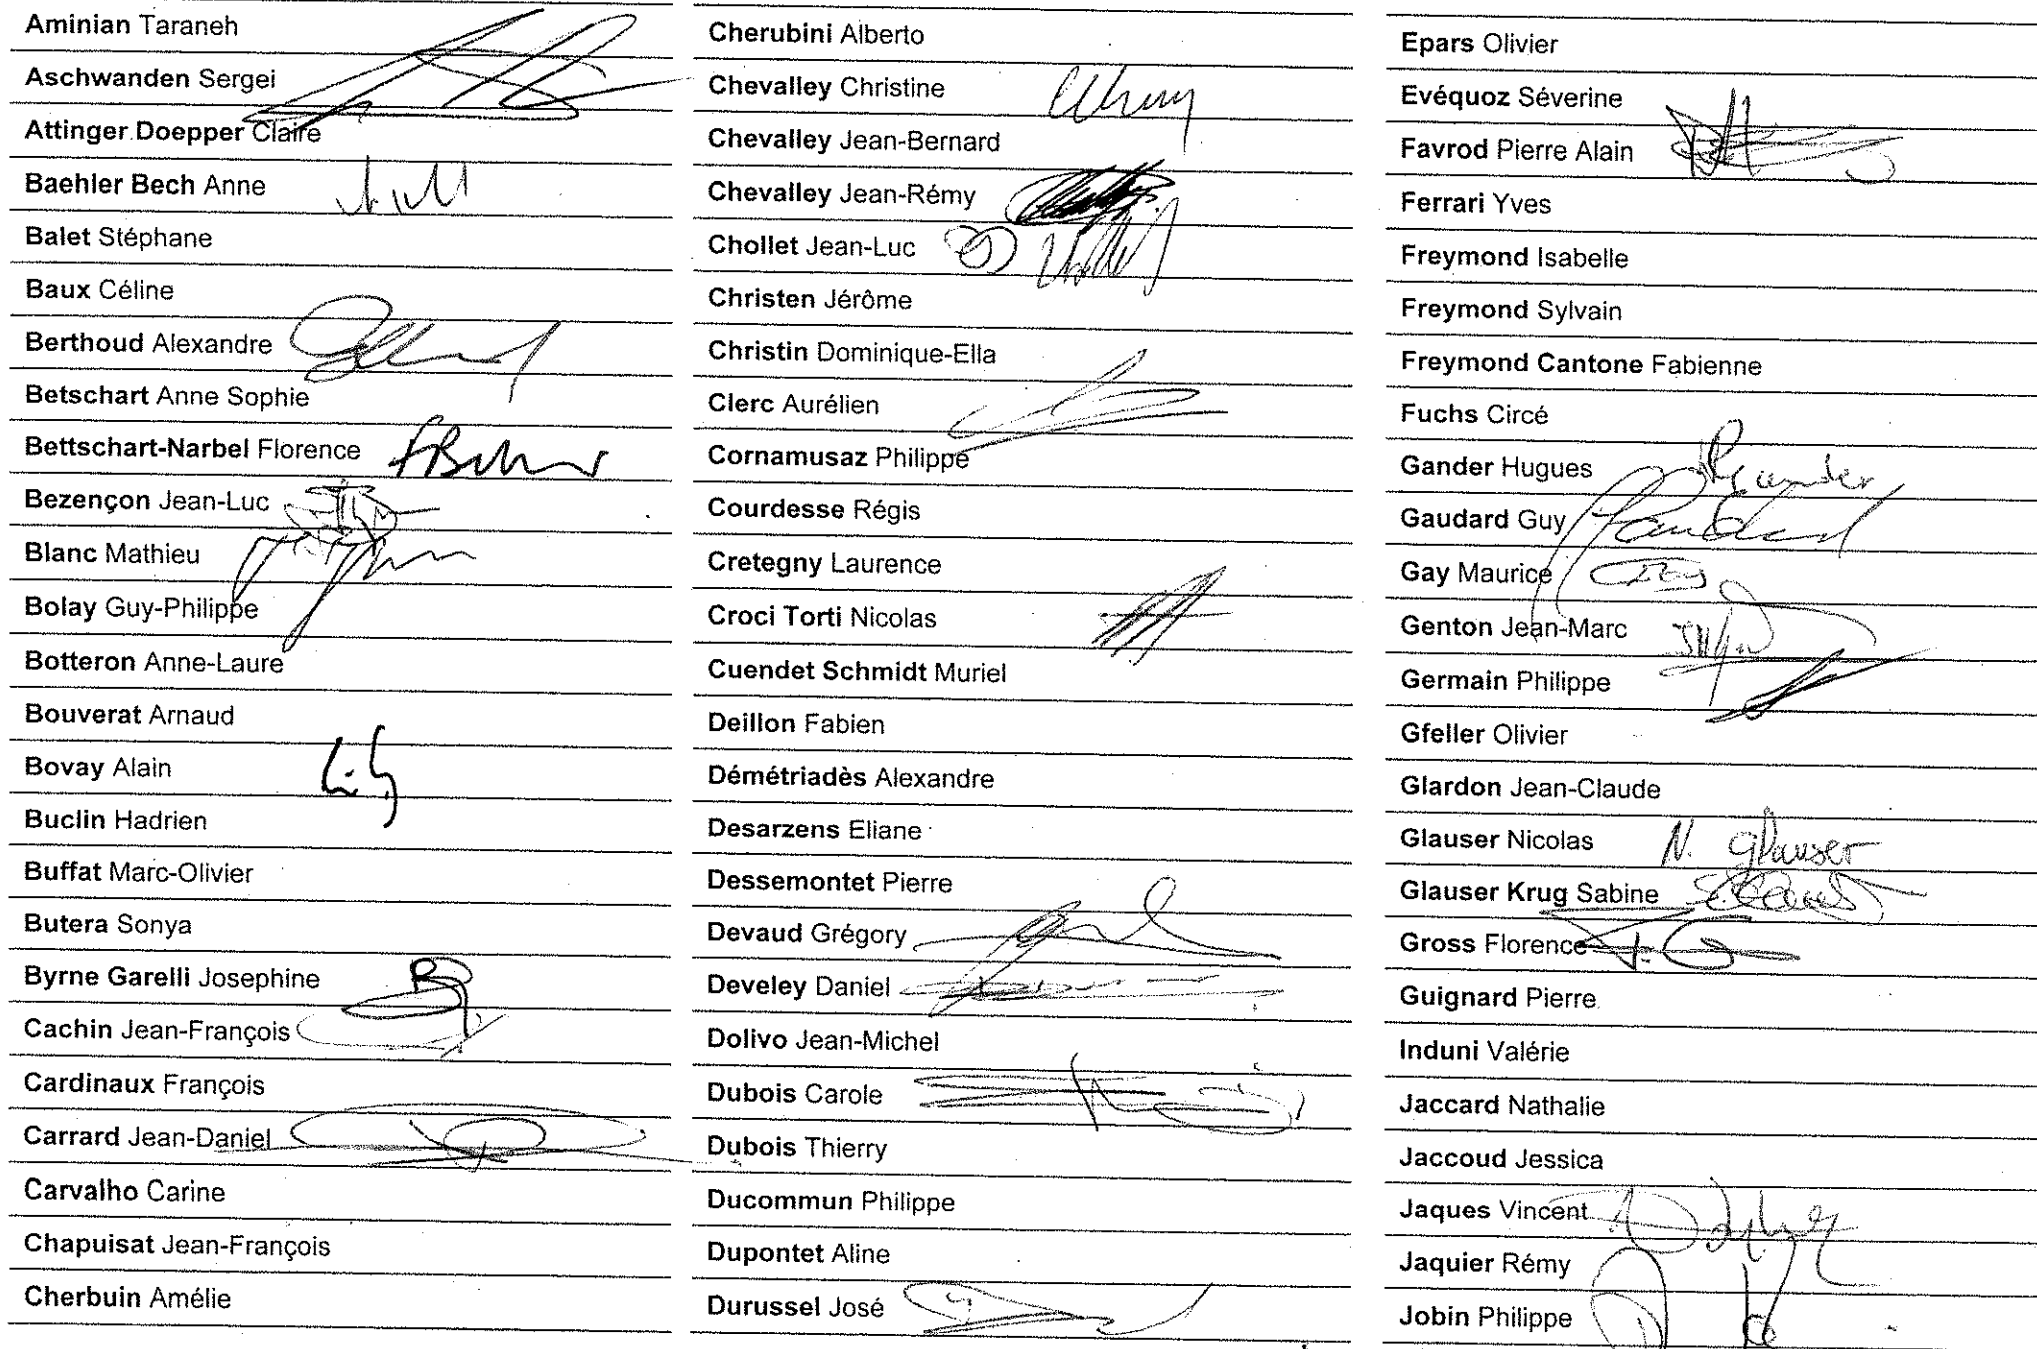 Aminian Taraneh
Aschwanden Sergei
Attinger Doepper Claire
Baehler Bech Anne
Balet Stéphane
Baux Céline
Berthoud Alexandre
Betschart Anne Sophie
Bettschart-Narbel Florence
Bezençon Jean-Luc
Blanc Mathieu
Bolay Guy-Philippe
Botteron Anne-Laure
Bouverat Arnaud
Bovay Alain
Buclin Hadrien
Buffat Marc-Olivier
Butera Sonya
Byrne Garelli Josephine
Cachin Jean-François
Cardinaux François
Carrard Jean-Daniel
Carvalho Carine
Chapuisat Jean-François
Cherbuin Amélie
Cherubini Alberto
Chevalley Christine
Chevalley Jean-Bernard
Chevalley Jean-Rémy
Chollet Jean-Luc
Christen Jérôme
Christin Dominique-Ella
Clerc Aurélien
Cornamusaz Philippe
Courdesse Régis
Cretegny Laurence
Croci Torti Nicolas
Cuendet Schmidt Muriel
Deillon Fabien
Démétriadès Alexandre
Desarzens Eliane
Dessemontet Pierre
Devaud Grégory
Develey Daniel
Dolivo Jean-Michel
Dubois Carole
Dubois Thierry
Ducommun Philippe
Dupontet Aline
Durussel José
Epars Olivier
Evéquoz Séverine
Favrod Pierre Alain
Ferrari Yves
Freymond Isabelle
Freymond Sylvain
Freymond Cantone Fabienne
Fuchs Circé
Gander Hugues
Gaudard Guy
Gay Maurice
Genton Jean-Marc
Germain Philippe
Gfeller Olivier
Glardon Jean-Claude
Glauser Nicolas N. Glauser
Glauser Krug Sabine
Gross Florence
Guignard Pierre
Induni Valérie
Jaccard Nathalie
Jaccoud Jessica
Jaques Vincent
Jaquier Rémy
Jobin Philippe